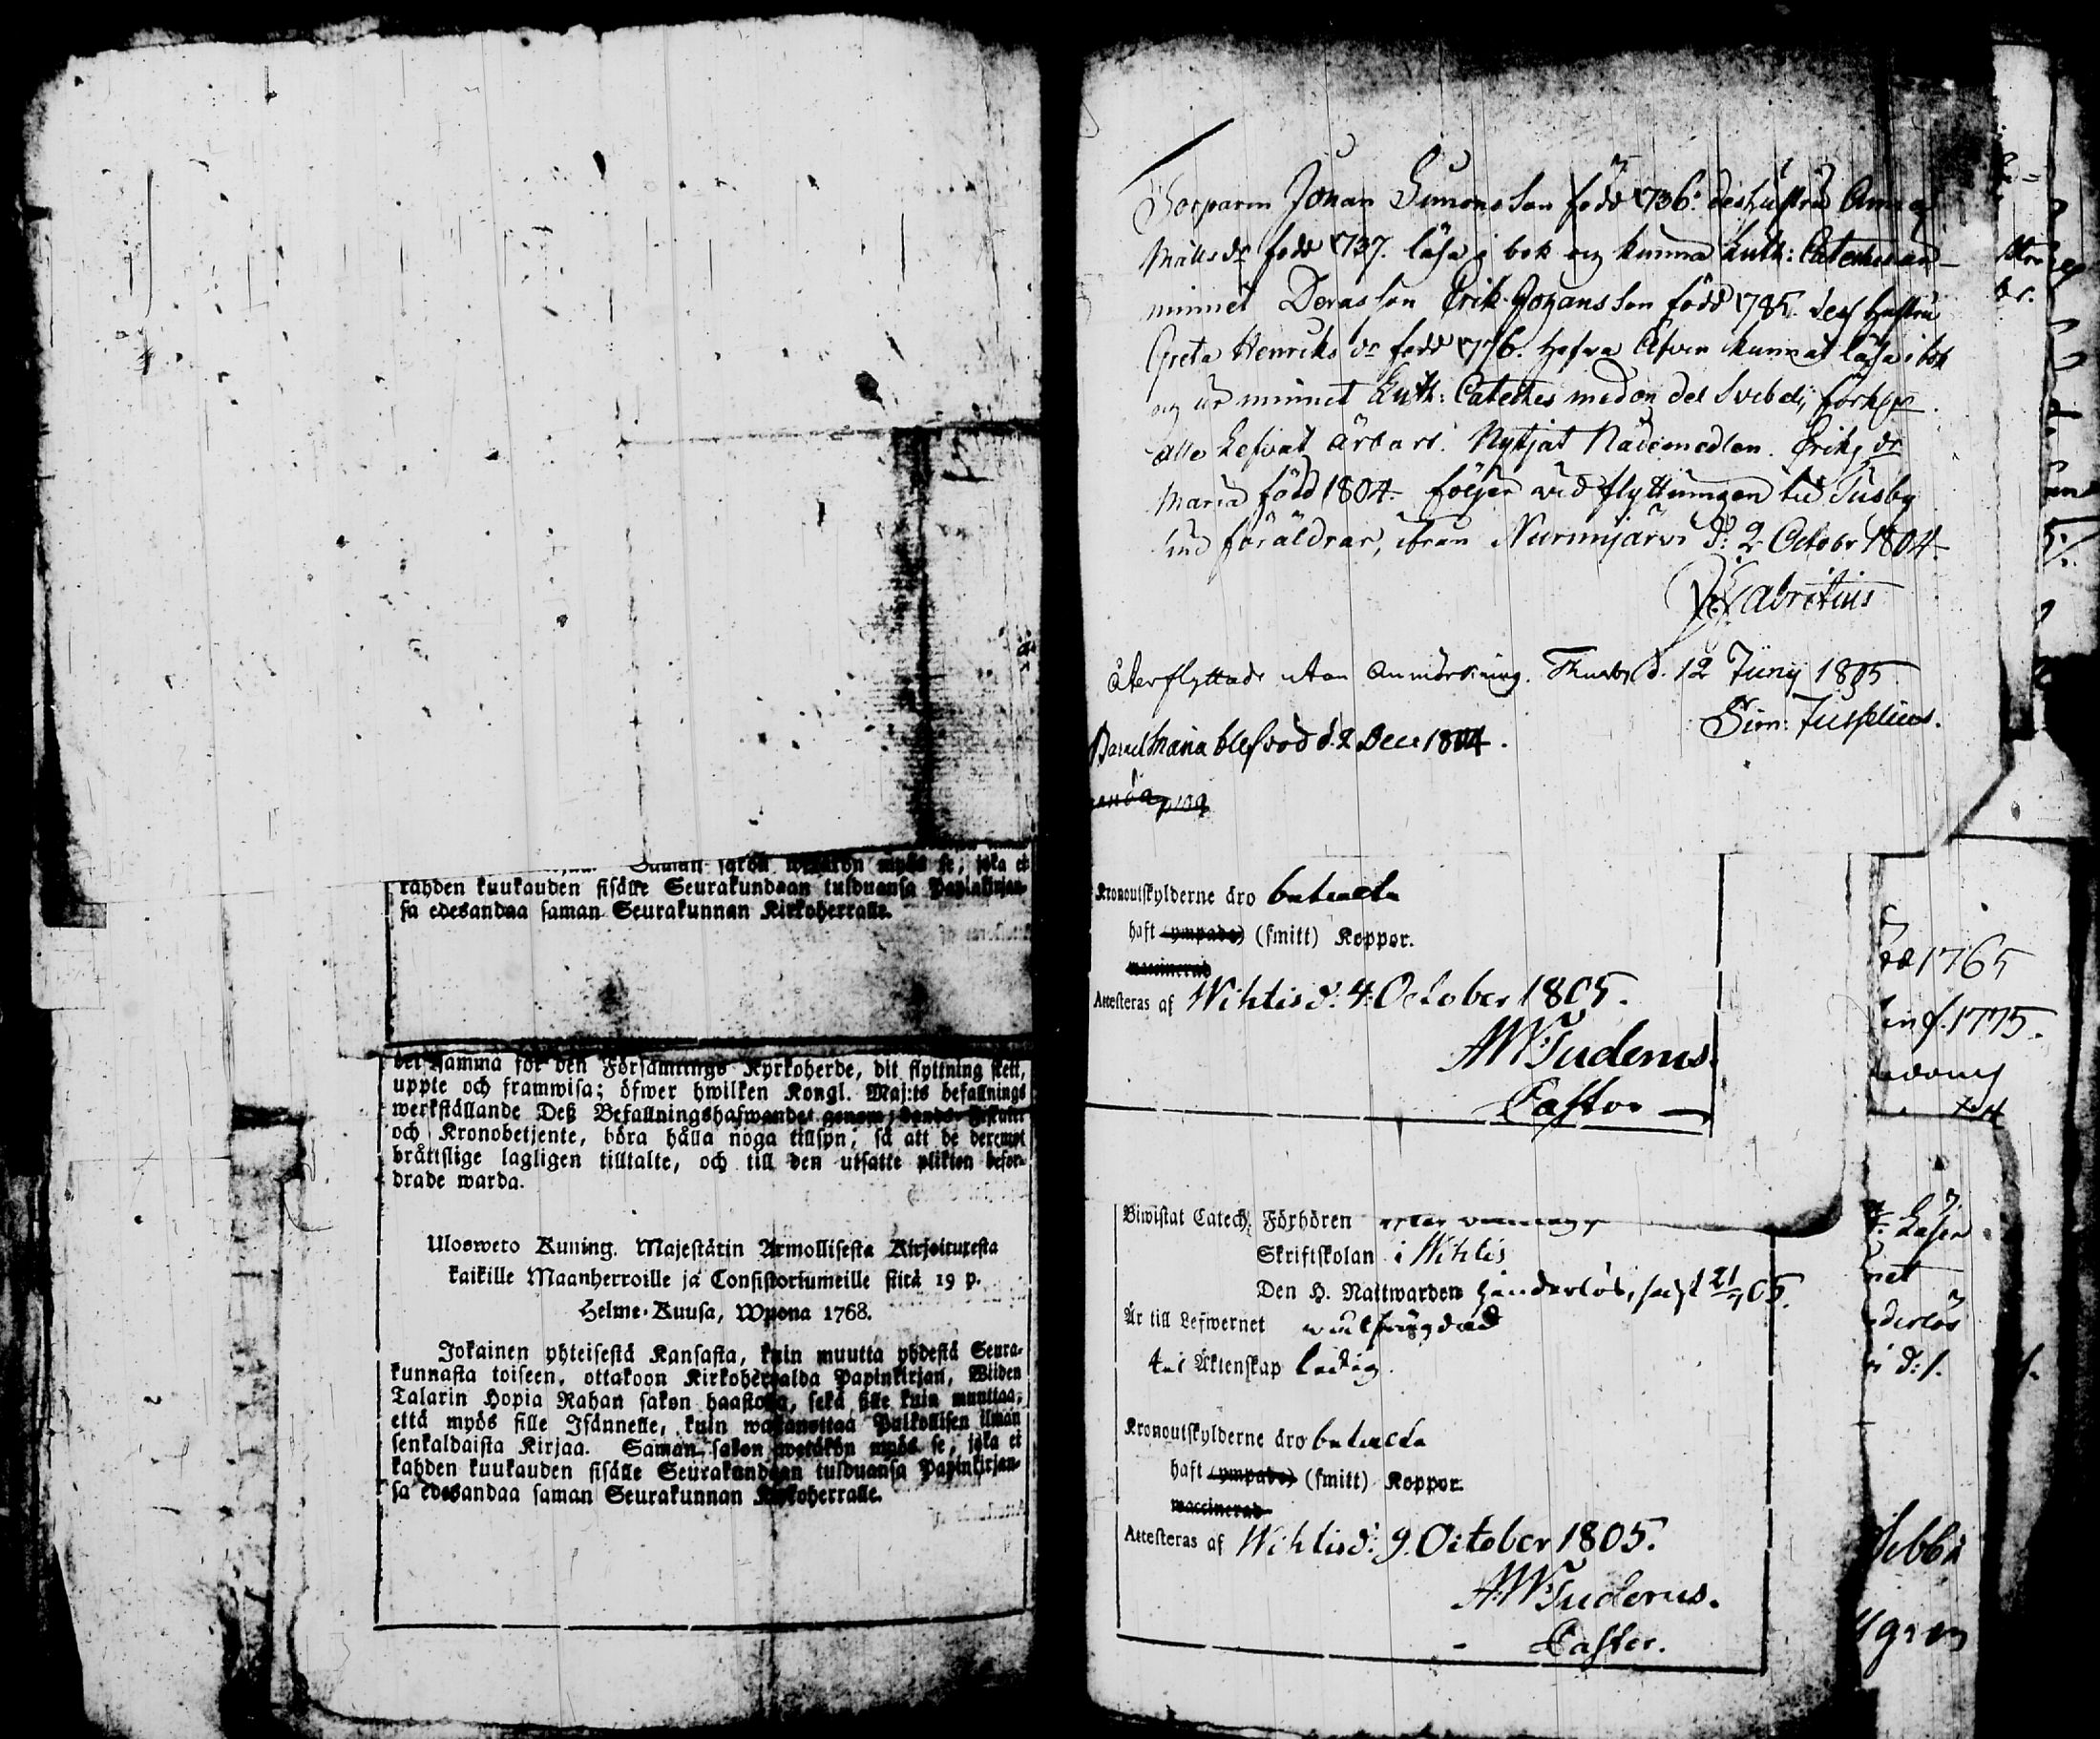 rahden kuukauden sisälle Seurakundaan tulduansa Papinkirjan-
sa edesandaa saman Seurakunnan Kirkoherralle.
det samma för den Församlings Kyrkoherde, dit flyttning skett,
uppte och framwisa; öfwer hwilken Kongl. Maj:ts befallnings
werkställande Deß Befallningshafwandet genom
och Kronobetjente, böra hålla noga tillsyn, så att de deremot
bråttslige lagligen tilltalte, och till den utsatte plikten befor-
drade warda.
Ulosweto Kuning. Majestätin Armollisesta Kirjoituxesta
kaikille Maanherroille ja Consistoriumeille siitä 19 p.
Helme-Kuusa, Wuona 1768.
Jokainen yhteisestä Kansasta, kuin muutta yhdestä Seura-
kunnasta toiseen, ottakoon Kirkoherralda Papinkirjan, Wiiden
Talarin Hopia Rahan sakon haastolla, sekä sille kuin muuttaa,
että myös sille Isännelle, kuin wastanottaa Palkollisen ilman
senkaldaista Kirjaa. Saman sakon wetäkön myös se, joka ei
kahden kuukauden sisälle Seurakundaan tulduansa Papinkirjan-
sa edesandaa saman Seurakunnan Kirkoherralle.
Torparen Johan Simonsson född 1736. des hustru Anna
Matts dr född 1737. läsa i bok og kunna Luth: Catechesen ur
minnet Deras son Erik Johansson född 1785. dess hustru
Greta Henriks dr född 1776. hafva äfven kunnat läsa i bok
og ur minnet Luth: Cateches med en del Svebelii förkl.
alle lefvat ärbart. Nytjat Nådemedlen. Eriks dr
Maria född 1804. följer vid flyttningen til Tusby
sina föräldrar, ifrån Nurmijärvi d: 2 October 1804.
Fabritius
Återflyttade utan anmärkning. Thusby d. 12 Juny 1805.
Sim: Jusselius.
Barnet Maria blef död d. 2 Dec 1804.
Kronoutskylderne äro betalda
haft (ympade) (smitt) Koppor.
waccinerad
Attesteras af Wihtis d: 4: October 1805.
AW Tuderus.
Pastor
Biwistat Catech: Förhören efter vanligt
Skriftskolan i Wihtis
Den H. Nattwarden hinderlös, sist 21/7 05.
Är till Lefwernet wälfrägdad
t. i Äktenskap ledig.
Kronoutskylderne äro betalda
haft (ympade) (smitt) Koppor.
waccinerad
Attesteras af Wihtis d: 9. October 1805.
AW Tuderus.
Pastor.
1765
f. 1775.
Läser
net
derlös